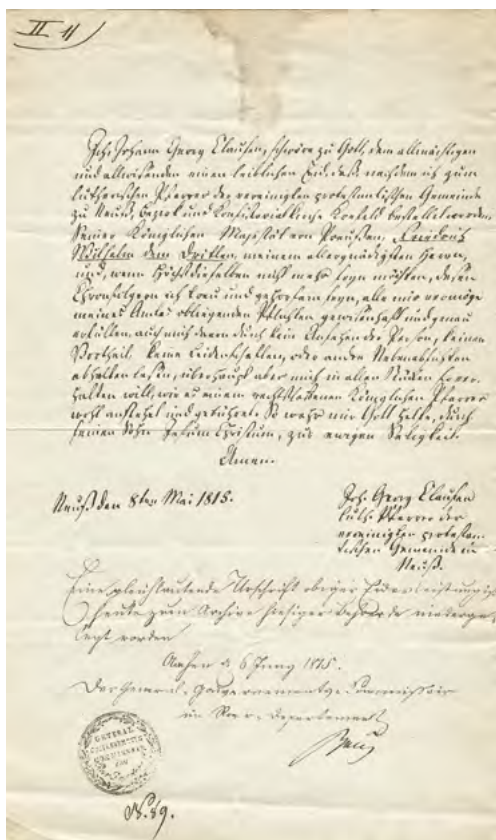 II 11
Ich, Johann Georg Clausen, schwöre zu Gott, dem allmächtigen
und allwissenden einen leiblichen Eid, daß, nachdem ich zum
lutherischen Pfarrer der vereinigten protestantischen Gemeinde
zu Neuß, Bezirk und Konsistorialkirche Krefeld bestellt worden,
Seiner Königlichen Majestät von Preussen, Friedrich
Wilhelm dem Dritten, meinem allergnädigsten Herrn,
und, wenn Höchstdieselben nicht mehr seyn möchten, dessen
Thronfolgern ich treu und gehorsam seyn, alle mir vermöge
meines Amtes obliegenden Pflichten gewissenhaft und genau
erfüllen, auch mich davon durch kein Ansehen der Person, keinen
Vortheil, keine Leidenschaften, oder andre Nebenabsichten
abhalten lassen, überhaupt aber mich in allen Stücken so ver-
halten will, wie es einem rechtschaffenen Königlichen Pfarrer
wohl anstehet und gebühret. So wahr mir Gott helfe, durch
seinen Sohn Jesum Christum, zur ewigen Seligkeit.
Amen.
Neuß den 8ten Mai 1815.
Joh. Georg Clausen
luth. Pfarrer der
vereinigten protestan-
tischen Gemeinde in
Neuß.
Eine gleichlautende Urschrift obiger Eidesleistung ist
heute zum Archive hiesiger Behörde niederge-
legt worden
Aachen d 6 Juny 1815.
Der General-Gouvernements-Commissair
im Roer-Departement
GENERAL
N. 89.